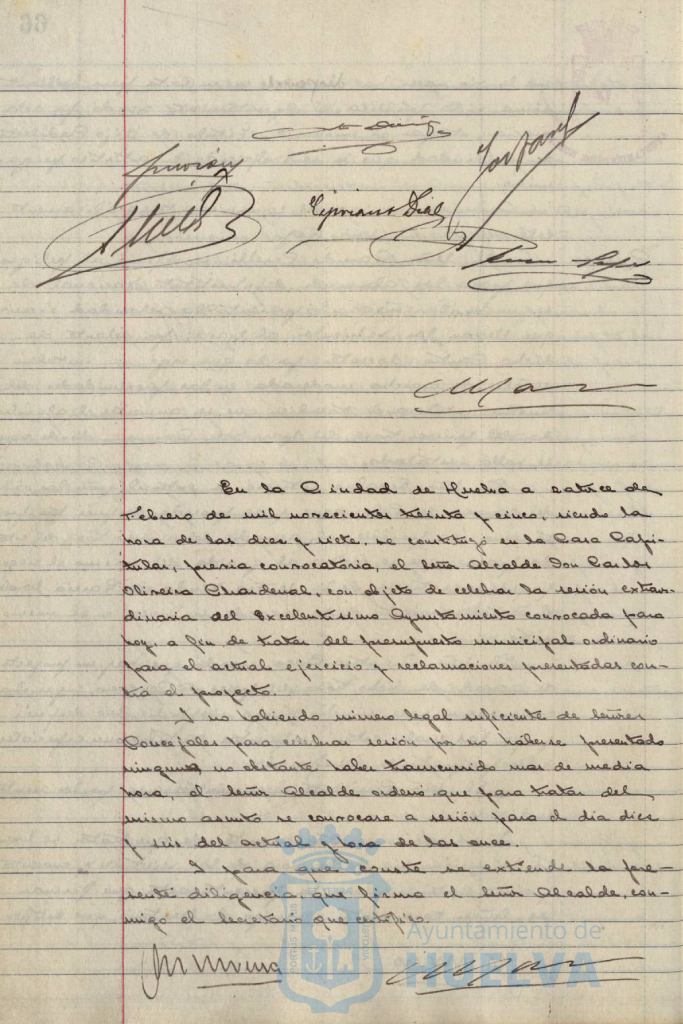 Cipriano Dial
En la Ciudad de Huelva a catorce de
Febrero de mil novecientos treinta y cinco, siendo la
hora de las diez y siete, se constituyó en la Casa Capi-
tular, previa convocatoria, el señor Alcalde Don Carlos
Oliveira Chardenal, con objeto de celebrar la sesión extraor-
dinaria del Excelentísimo Ayuntamiento convocada para
hoy, a fin de tratar del presupuesto municipal ordinario
para el actual ejercicio y reclamaciones presentadas con-
tra el proyecto.
Y no habiendo número legal suficiente de señores
Concejales para celebrar sesión por no haberse presentado
ninguno, no obstante haber transcurrido mas de media
hora, el señor Alcalde ordenó que para tratar del
mismo asunto se convocase a sesión para el día diez
y seis del actual y hora de las once.
Y para que conste se extiende la pre-
sente diligencia, que firma el señor Alcalde, con-
migo el Secretario que certifico.
Ayuntamiento de
HUELVA